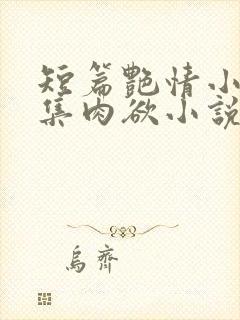 短篇艷情小
集肉欲小說
烏齊